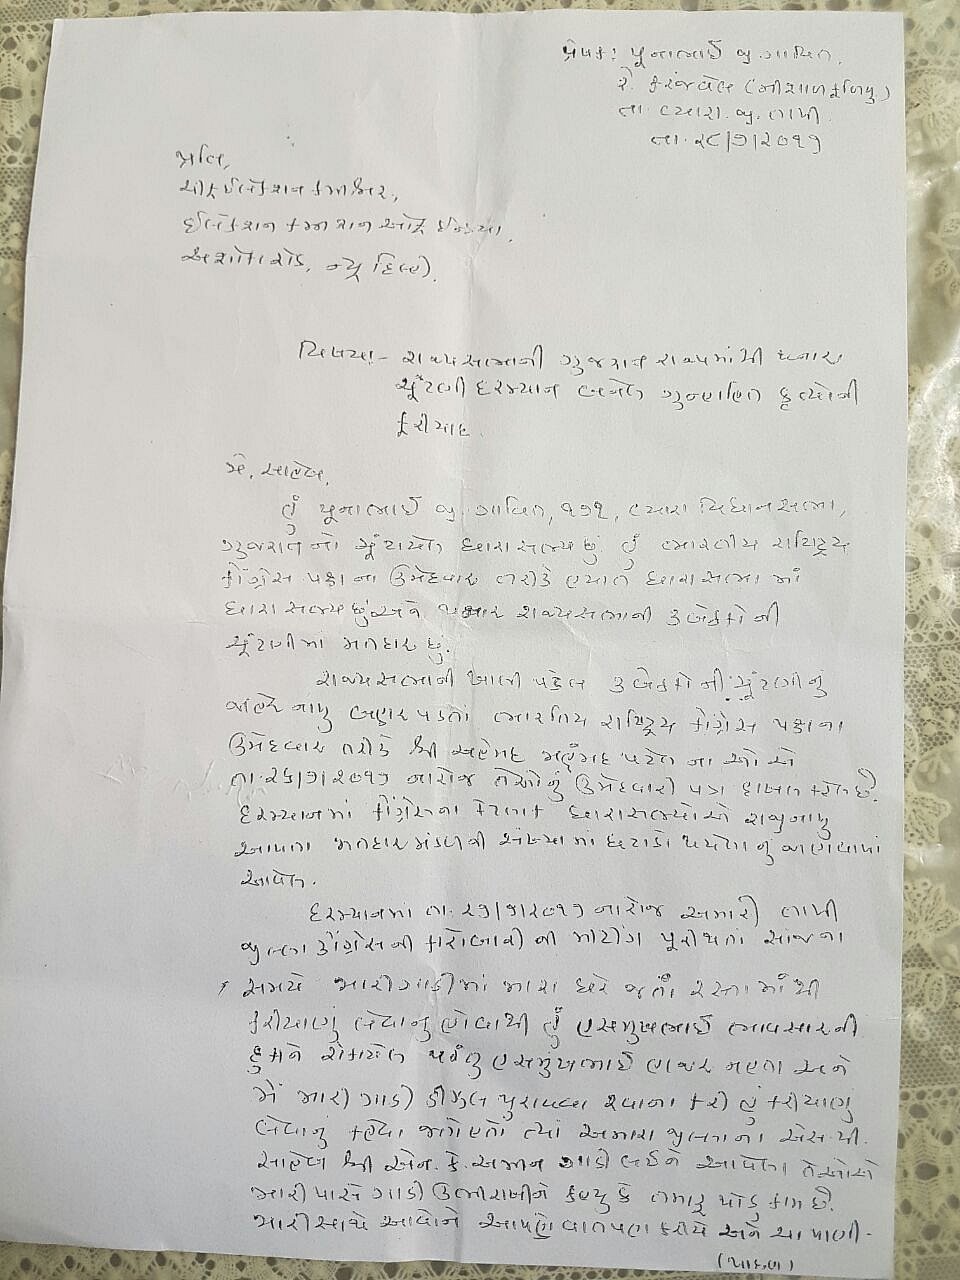 પ્રેષક: પૂનાભાઈ જી. ગામિત,
રે. કરંજવેલ (નીશાળ ફળિયુ)
તા. વ્યારા. જી. તાપી.
તા. ૨૮/૭/૨૦૧૭
પ્રતિ,
ચીફ ઈલેકશન કમીશ્નર,
ઈલેકશન કમીશન ઓફ ઈન્ડીયા,
અશોકા રોડ, ન્યૂ દિલ્હી.
વિષય:- રાજ્યસભાની ગુજરાત રાજ્યમાંથી થનાર
ચૂંટણી દરમ્યાન બનેલ ગુન્હાહિત કૃત્યોની
ફરીયાદ.
મે. સાહેબ,
હું પૂનાભાઈ જી. ગામિત, ૧૭૧, વ્યારા વિધાનસભા,
ગુજરાતનો ચૂંટાયેલ ધારાસભ્ય છું. હું ભારતીય રાષ્ટ્રિય
કોંગ્રેસ પક્ષના ઉમેદવાર તરીકે હયાત ધારાસભામાં
ધારાસભ્ય છું અને થનાર રાજ્યસભાની ૩ બેઠકોની
ચૂંટણીમાં મતદાર છું.
રાજ્યસભાની ખાલી પડેલ ૩ બેઠકોની ચૂંટણીનું
જાહેરનામુ બહાર પડતાં ભારતિય રાષ્ટ્રિય કોંગ્રેસ પક્ષના
ઉમેદવાર તરીકે શ્રી અહેમદ મહંમદ પટેલ નાઓ એ
તા. ૨૬/૭/૨૦૧૭ નારોજ તેઓનું ઉમેદવારી પત્ર દાખલ કરેલ છે.
દરમ્યાનમાં કોંગ્રેસના કેટલાક ધારાસભ્યોએ રાજીનામુ
આપતા મતદાર મંડળની સંખ્યામાં ઘટાડો થયેલાનું જાણવામાં
આવેલ.
દરમ્યાનમાં તા. ૨૭/૭/૨૦૧૭ નારોજ અમારી તાપી
જીલ્લા કોંગ્રેસની કારોબારીની મીટીંગ પૂરી થતાં સાંજના
સમયે મારી ગાડીમાં મારા ઘરે જતાં રસ્તામાંથી
કરીયાણું લેવાનું હોવાથી હું હસમુખભાઈ ભાવસારની
દુકાને રોકાયેલ પરંતુ હસમુખભાઈ હાજર નહતા અને
મેં મારી ગાડી ડીઝલ પુરાવવા રવાના કરી હું કરીયાણું
લેવાનું કહેવા જતો હતો ત્યાં અમારા જીલ્લાના એસ.પી.
સાહેબ શ્રી એન. કે. અમીન ગાડી લઈને આવેલા તેઓએ
મારી પાસે ગાડી ઉભી રાખીને કહ્યુ કે તમારૂ થોડુ કામ છે.
મારી સાથે આવોને આપણે વાતપણ કરીયે અને ચા પાણી-